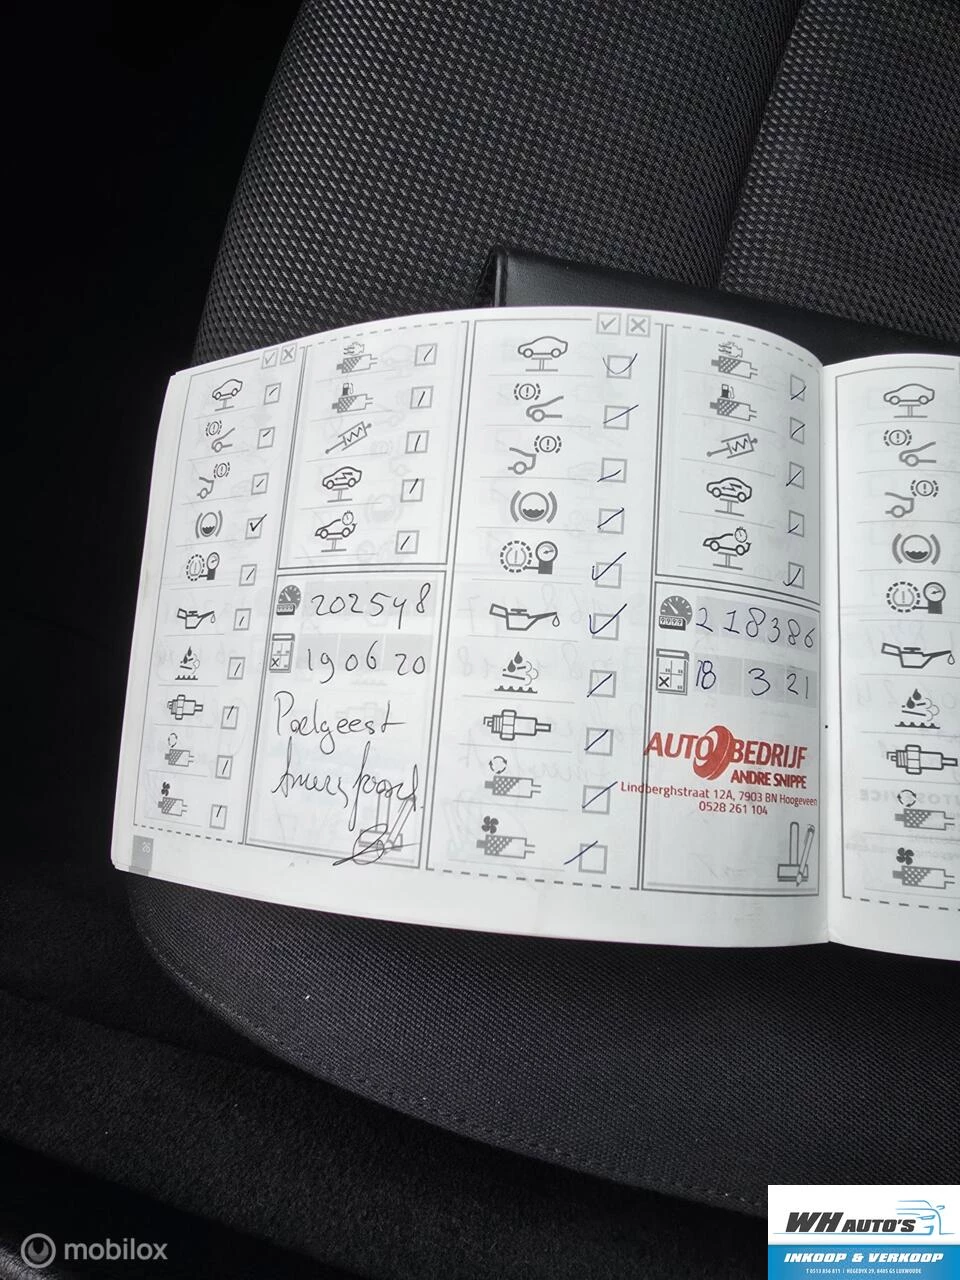 202548
19 06 20
Poelgeest
Amersfoort.
26
218386
18 3 21
AUTO BEDRIJF
ANDRE SNIPPE
Lindberghstraat 12A, 7903 BN Hoogeveen
0528 261 104
mobilox
WH AUTO'S
INKOOP & VERKOOP
T 0513 856 811 | HEGEDYK 29, 8405 GS LUXWOUDE